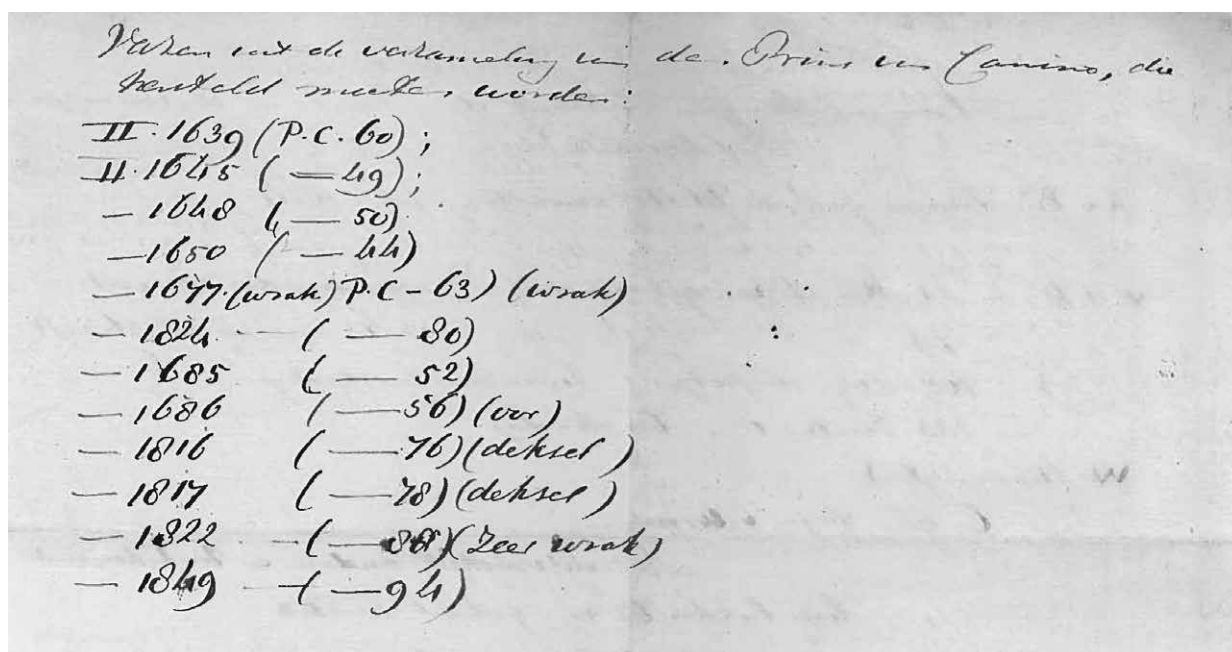 Vazen uit de verzameling van den Prins van Canino, die
hersteld moeten worden:
II. 1639 (P.C. 60);
II. 1645 ( — 49);
— 1648 ( — 50)
— 1650 ( — 44)
— 1677 (wrak) P.C - 63) (wrak)
— 1824 — ( — 80)
— 1685 ( — 52)
— 1686 ( — 56) (oor)
— 1816 ( — 76) (deksel)
— 1817 ( — 78) (deksel)
— 1822 — ( — (Zeer wrak)
— 1849 — ( — 94)